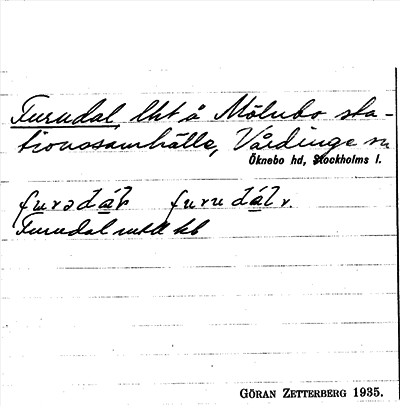 Furudal, lht å Mölnbo sta-
tionssamhälle, Vårdinge sn
Öknebo hd, Stockholms l.
furədál. furudál.
Furudal
GÖRAN ZETTERBERG 1935.